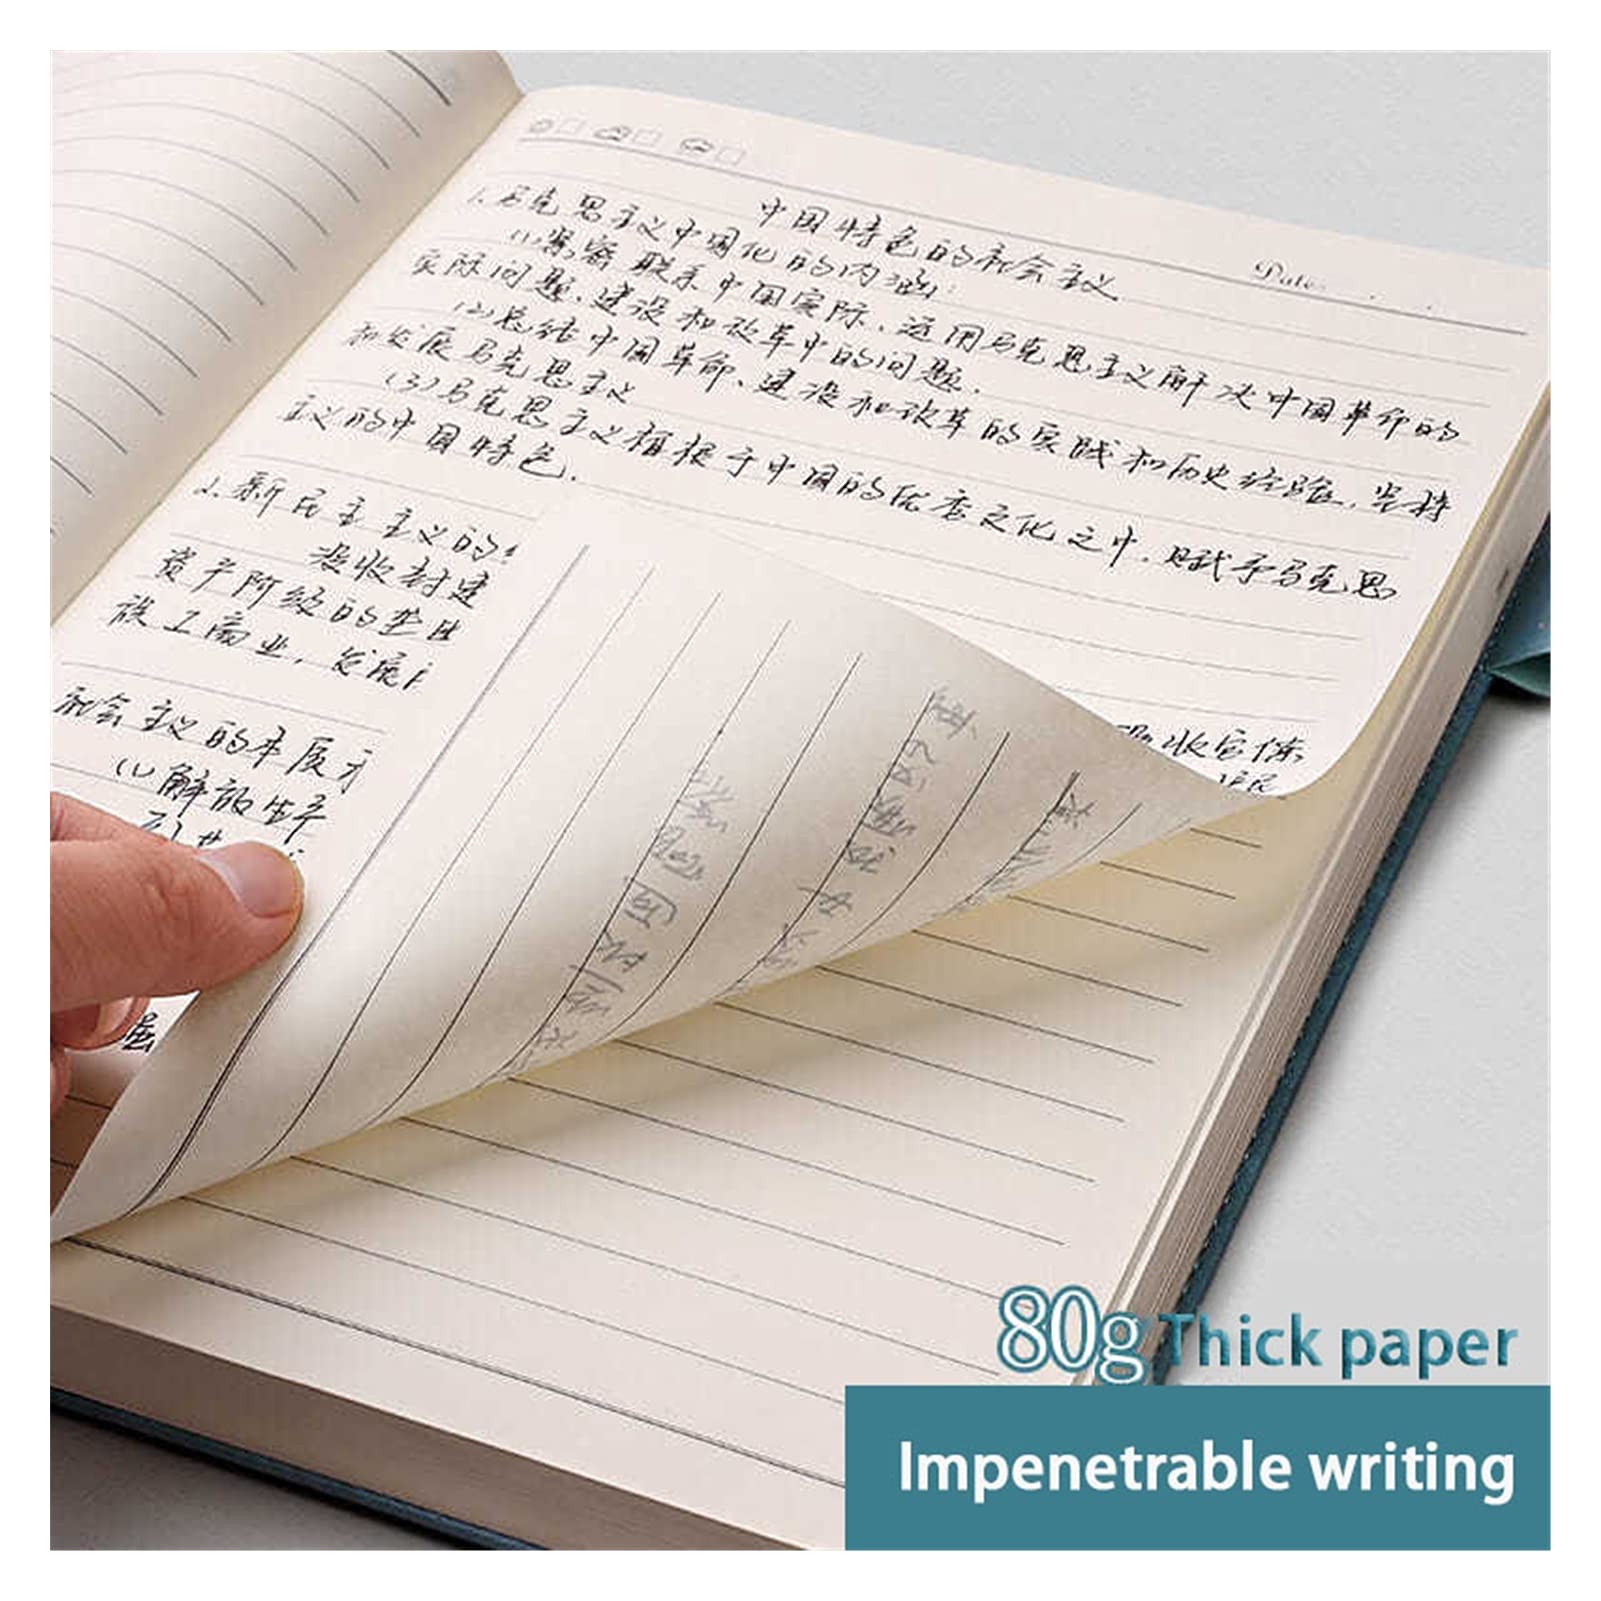 Date:
中国特色的社会主义
1.马克思主义中国化的内涵:
(1)紧密联系中国实际、运用马克思主义解决中国革命的
实际问题、建设和改革中的问题.
(2)总结中国革命、建设和改革的实践和历史经验、坚持
和发展马克思主义
(3)马克思主义植根于中国的优秀文化之中.赋予马克思
主义的中国特色.
2.新民主主义的
没收封建
资产阶级的垄
族工商业,发展
社会主义的本质
(1)解放生产
80g Thick paper
Impenetrable writing